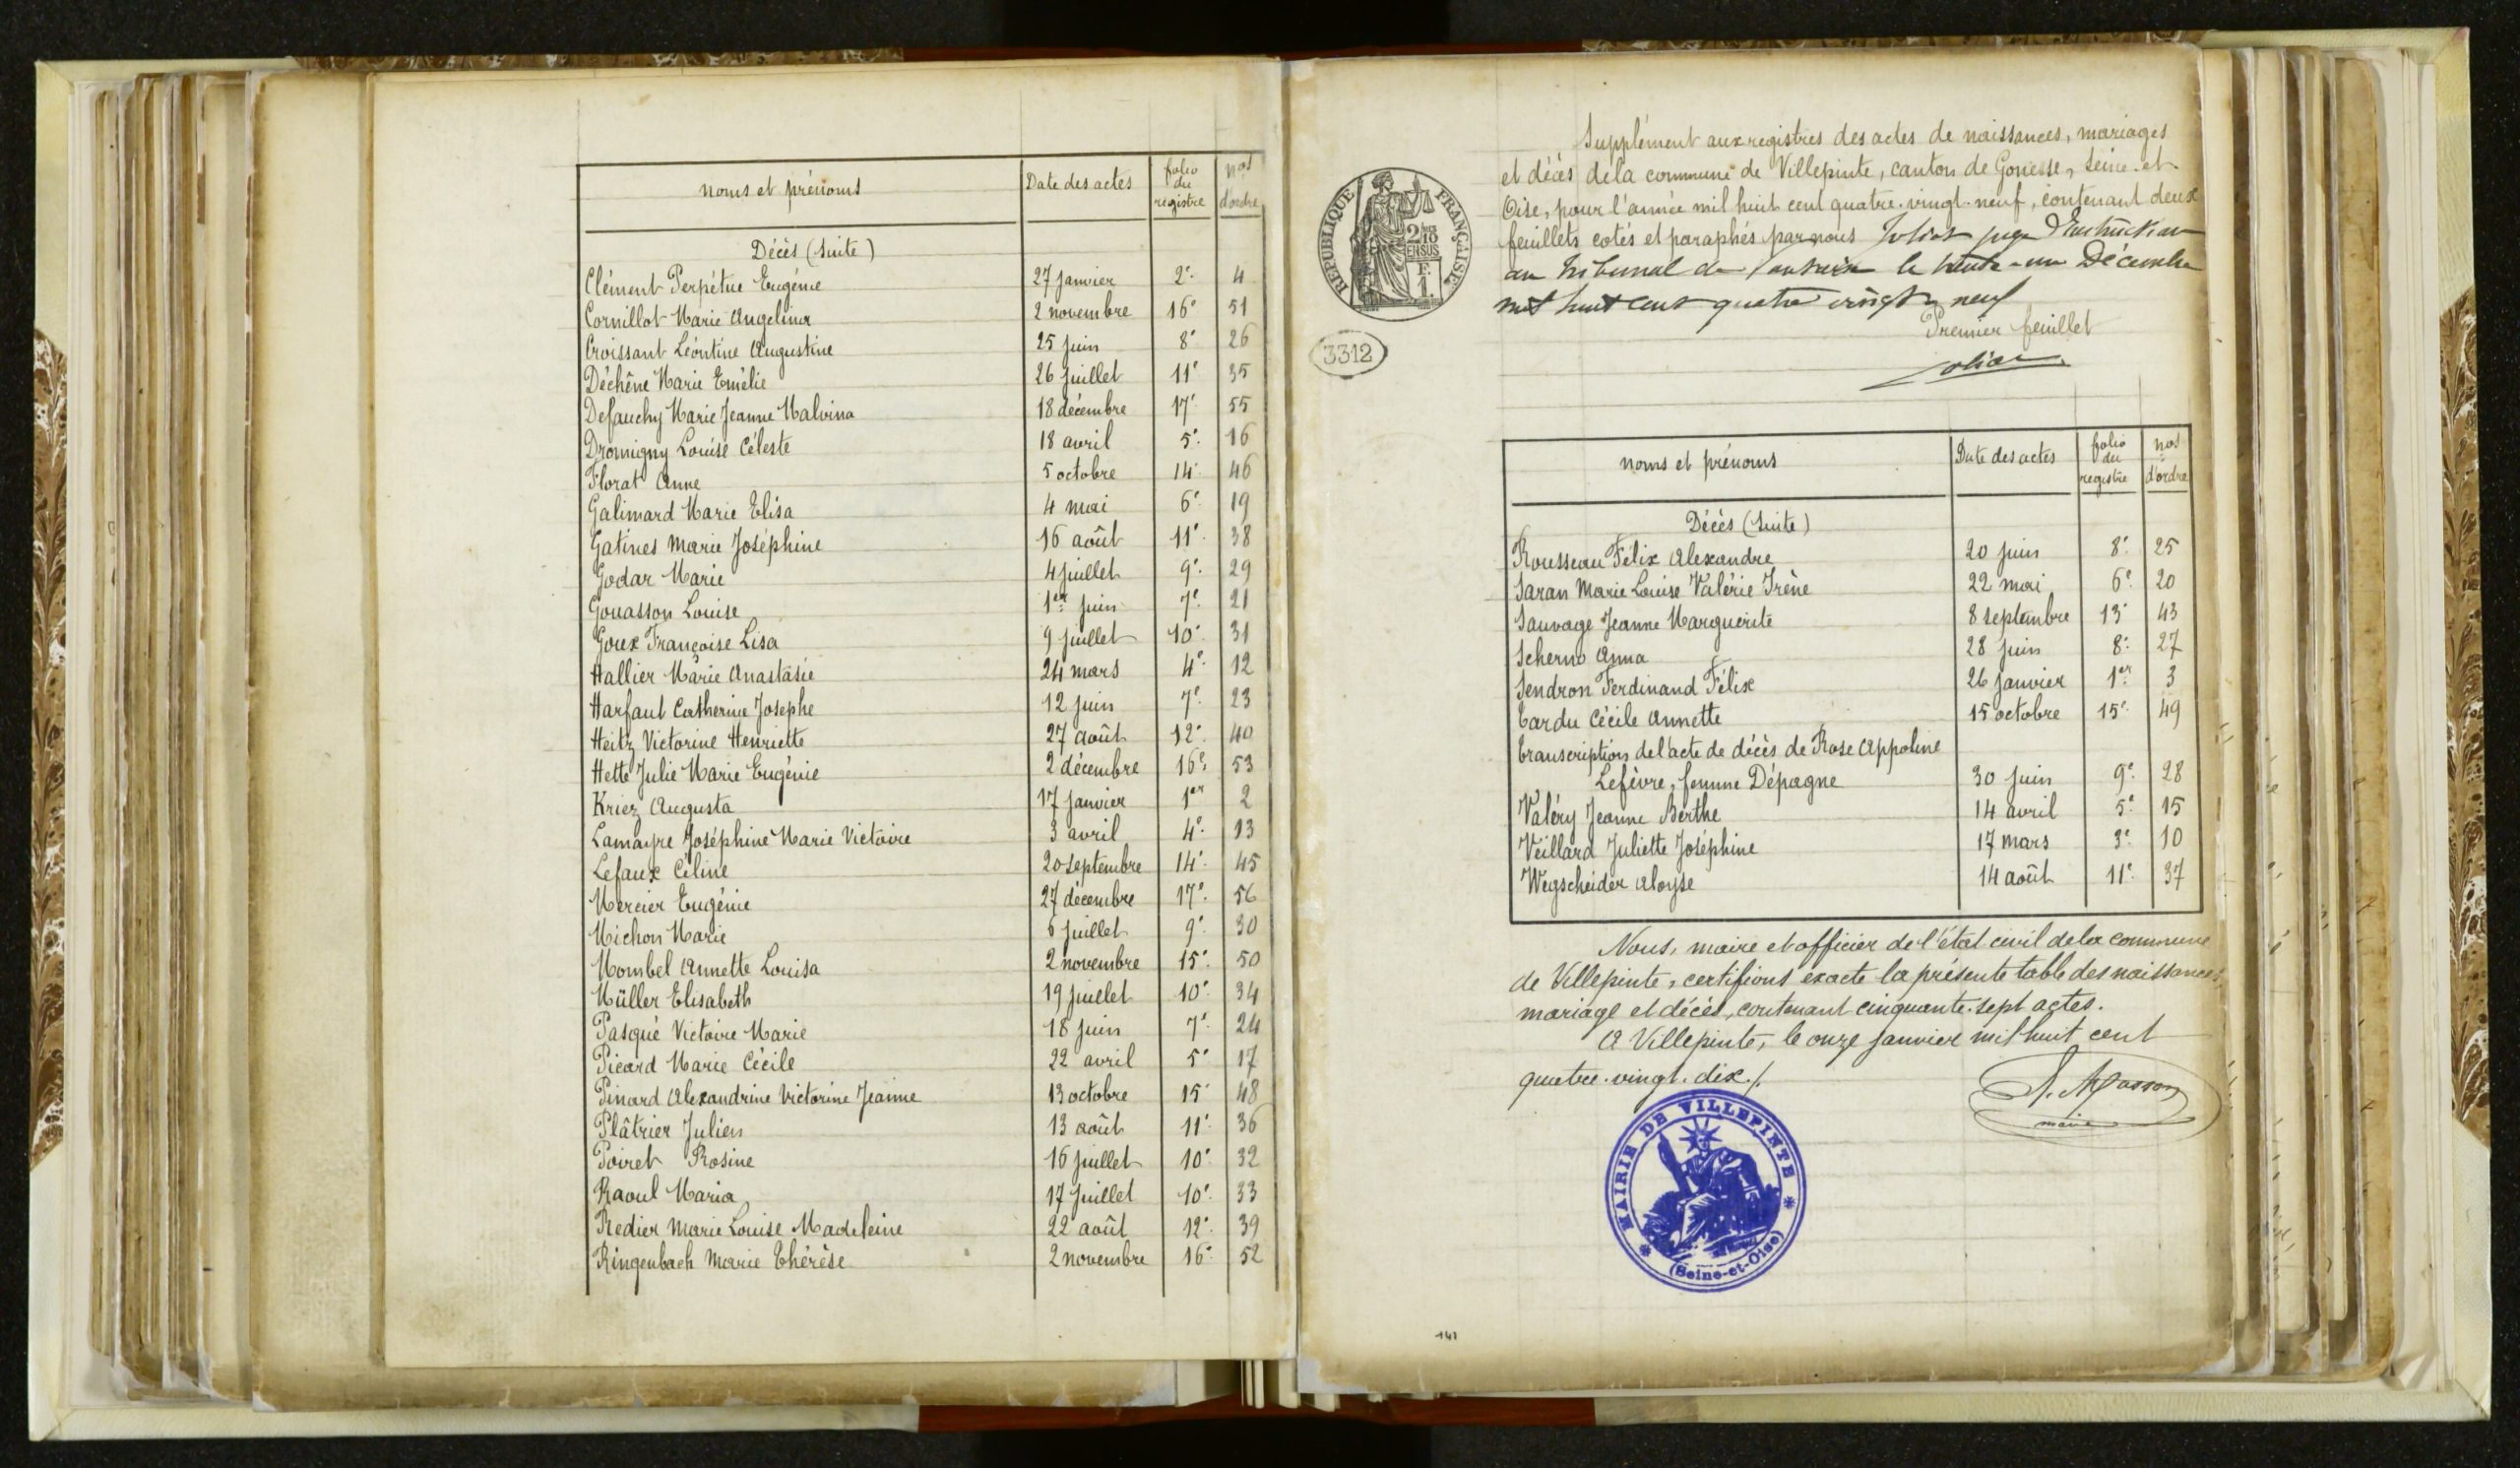 noms et prénoms Date des actes folio du registre nos d'ordre
Décès (Suite)
Clément Perpétue Eugénie 27 janvier 2e 4
Cornillot Marie Angelina 2 novembre 16e 51
Croissant Léontine Augustine 25 juin 8e 26
Déchêne Marie Emélie 26 juillet 11e 35
Defauchy Marie Jeanne Malvina 18 décembre 17e 55
Dromigny Louise Céleste 18 avril 5e 16
Florat Anne 5 octobre 14e 46
Galimard Marie Elisa 4 mai 6e 19
Gatines Marie Joséphine 16 août 11e 38
Godar Marie 4 juillet 9e 29
Gouasson Louise 1er juin 7e 21
Goux Françoise Lisa 9 juillet 10e 31
Hallier Marie Anastasie 24 mars 4e 12
Harfaut Catherine Josephe 12 juin 7e 23
Heitz Victorine Henriette 27 août 12e 40
Hette Julie Marie Eugénie 2 décembre 16e 53
Kriez Augusta 17 janvier 1er 2
Lamayre Joséphine Marie Victoire 3 avril 4e 13
Lefaux Céline 20 septembre 14e 45
Mercier Eugénie 27 décembre 17e 56
Michon Marie 6 juillet 9e 30
Mombel Annette Louisa 2 novembre 15e 50
Müller Elisabeth 19 juillet 10e 34
Pasqué Victoire Marie 18 juin 7e 24
Picard Marie Cécile 22 avril 5e 17
Pinard Alexandrine Victorine Jeanne 13 octobre 15e 48
Plâtrier Julien 13 août 11e 36
Poiret Rosine 16 juillet 10e 32
Raoul Maria 17 juillet 10e 33
Redier Marie Louise Madeleine 22 août 12e 39
Ringenbach Marie Thérèse 2 novembre 16e 52
RÉPUBLIQUE FRANÇAISE
2/10 EN SUS
F. 1.
3312
Supplément aux registres des actes de naissances, mariages
et décès de la commune de Villepinte, canton de Gonesse, Seine-et-
Oise, pour l'année mil huit cent quatre-vingt-neuf, contenant deux
feuillets cotés et paraphés par nous juge d'Instruction
au tribunal de Pontoise le trente-un Décembre
mil huit cent quatre vingt neuf
Premier feuillet
noms et prénoms Date des actes folio du registre nos d'ordre
Décès (Suite)
Rousseau Félix Alexandre 20 juin 8e 25
Saran Marie Louise Valérie Irène 22 mai 6e 20
Sauvage Jeanne Marguerite 8 septembre 13e 43
Scherno Anna 28 juin 8e 27
Sendron Ferdinand Félix 26 janvier 1er 3
Tardu Cécile Annette 15 octobre 15e 49
Transcription de l'acte de décès de Rose Appoline
Lefèvre, femme Dépagne 30 juin 9e 28
Valéry Jeanne Berthe 14 avril 5e 15
Veillard Juliette Joséphine 17 mars 3e 10
Wegscheider Aloyse 14 août 11e 37
Nous, maire et officier de l'état civil de la commune
de Villepinte, certifions exacte la présente table des naissances,
mariage et décès, contenant cinquante-sept actes.
A Villepinte, le onze janvier mil huit cent
quatre-vingt-dix./.
maire
* MAIRIE DE VILLEPINTE *
(Seine-et-Oise)
141